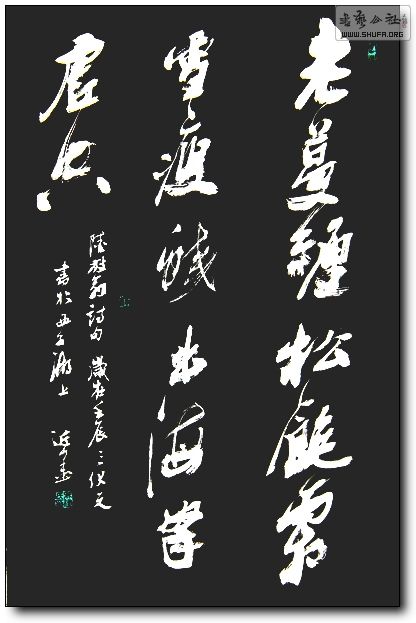 老蔓纏松飽霜
雪瘦蛟出海拏
虛空
陸放翁詩句 歲在壬辰三伏天
書於西子湖上
书艺公社
WWW.SHUFA.ORG